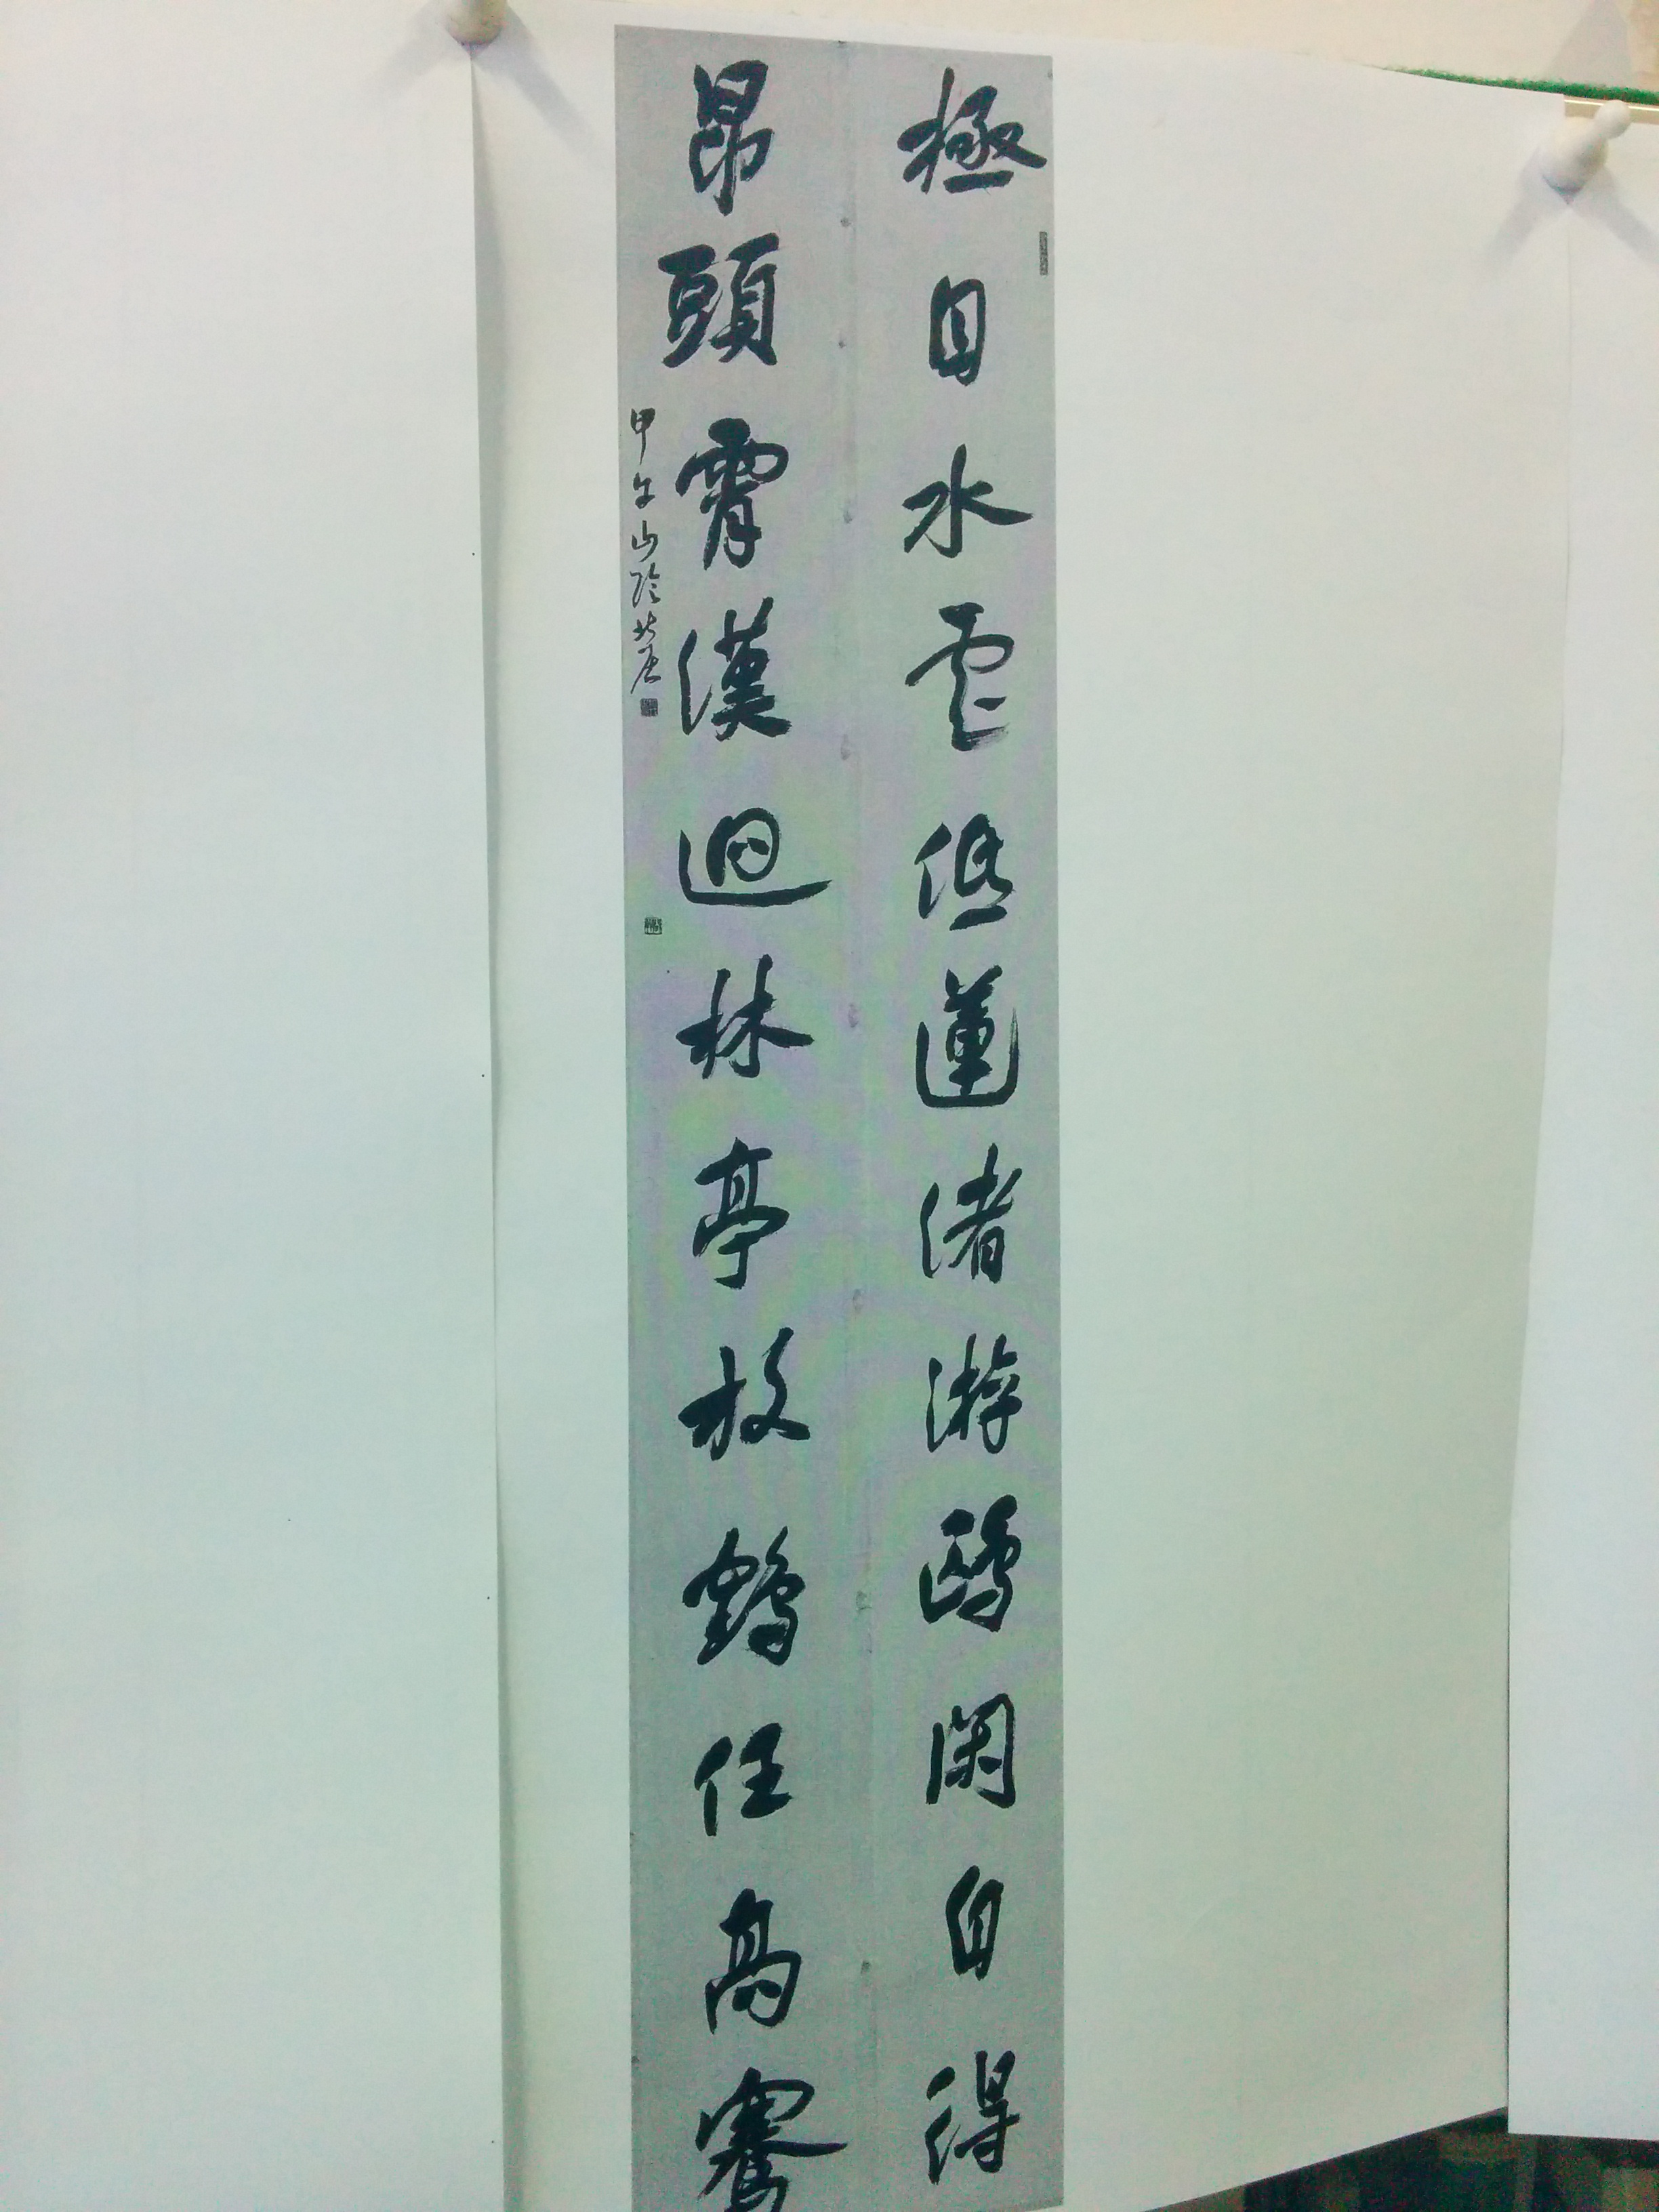 極目水雲低蓮渚游鷗閑自得
昂頭霄漢迥林亭放鶴任高騫
甲午山陰